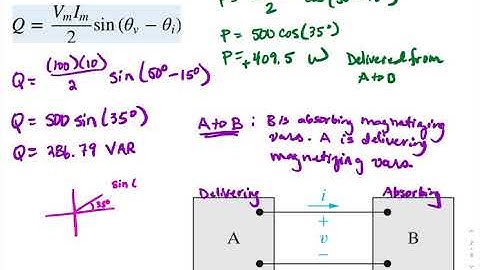 Q = VmIm/2 sin (θv − θi)
2
P = 500 cos(35°)
P = +409.5 W Delivered from
A to B
Q = (100)(10)/2 sin(50° − 15°)
Q = 500 sin(35°)
Q = 286.79 VAR
A to B : B is absorbing magnetizing
vars. A is delivering
magnetizing vars.
sin(
35°
Delivering i Absorbing
+
A v B
−